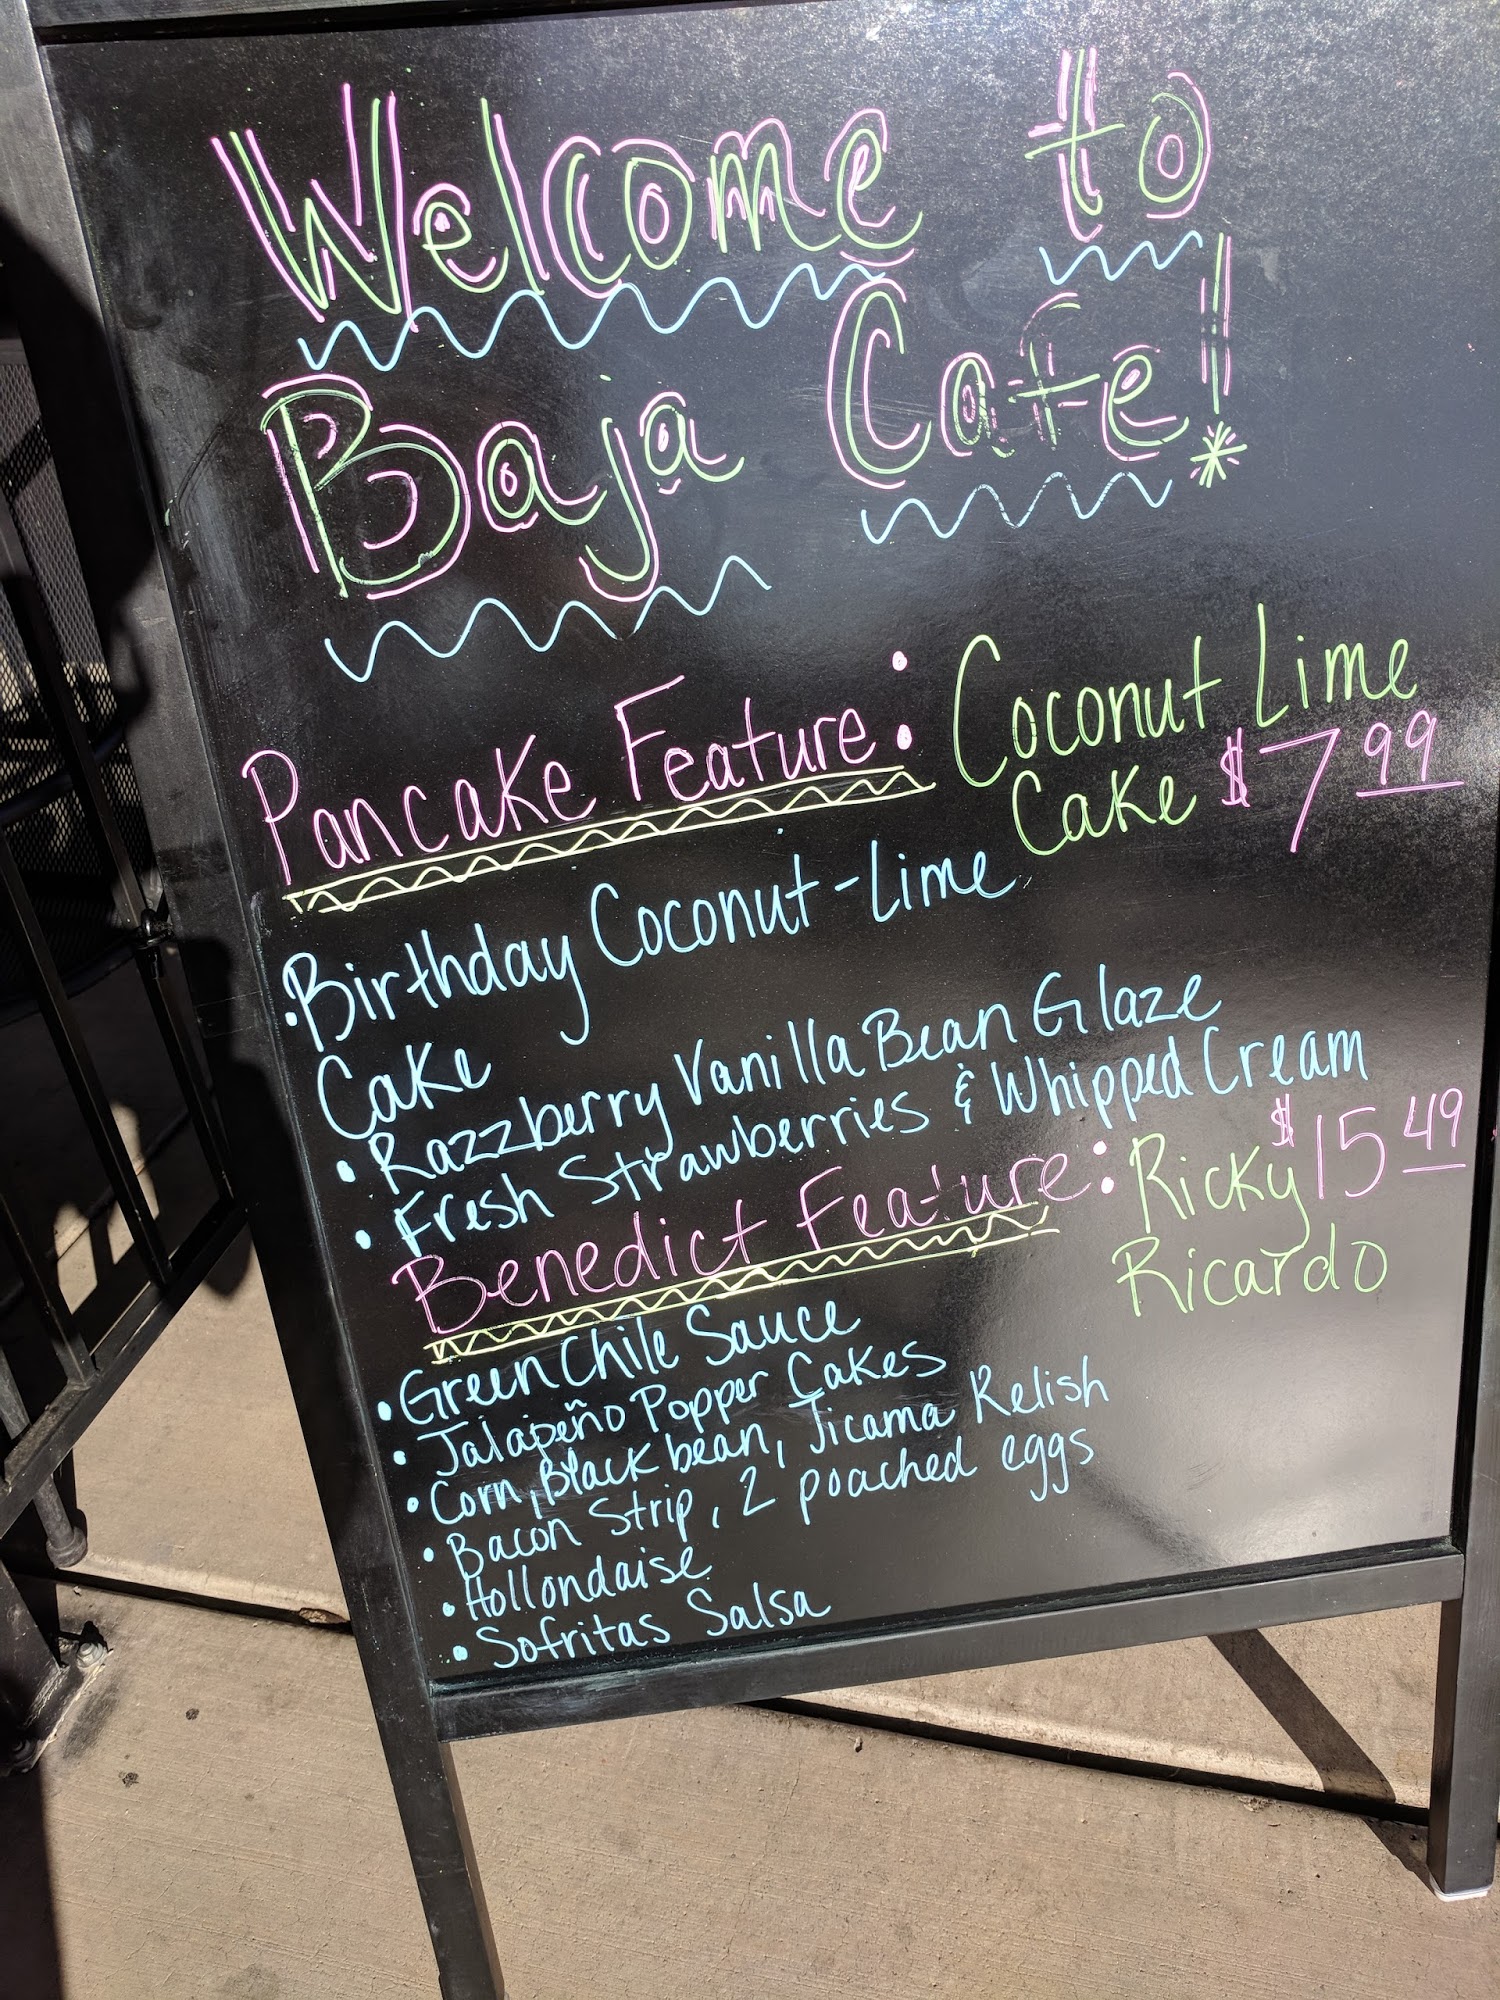 Welcome to
Baja Cafe!
Pancake Feature: Coconut Lime
Cake $7.99
• Birthday Coconut-Lime
Cake
• Razzberry Vanilla Bean Glaze
• Fresh Strawberries & Whipped Cream
Benedict Feature: Ricky $15.49
Ricardo
• Green Chile Sauce
• Jalapeño Popper Cakes
• Corn, Black bean, Jicama Relish
• Bacon Strip, 2 poached eggs
• Hollondaise
• Sofritas Salsa